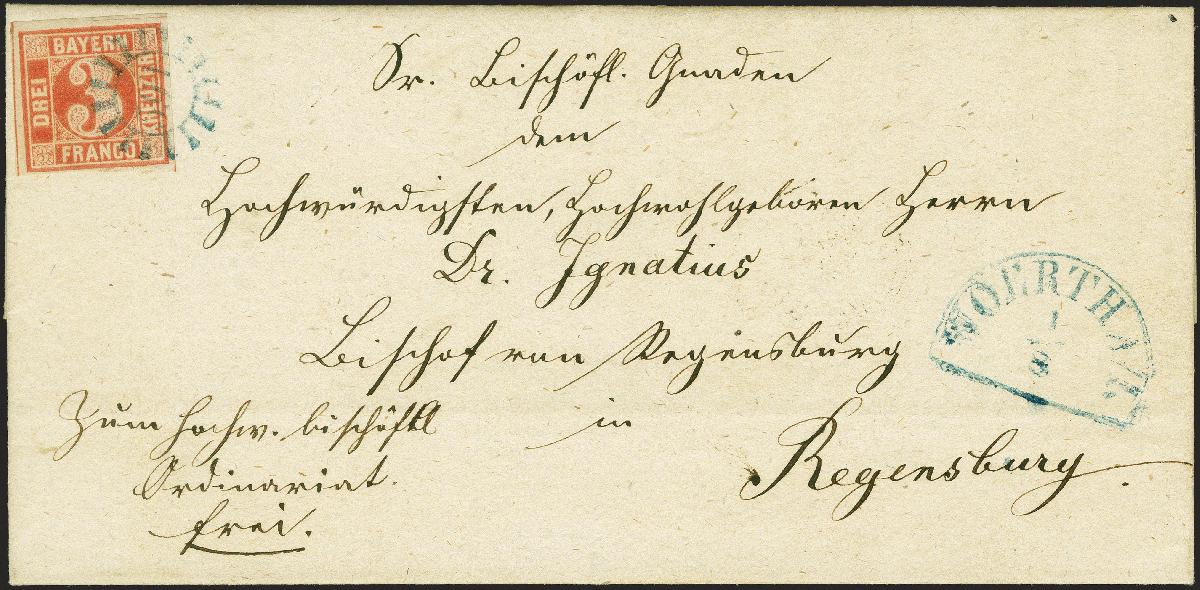 BAYERN
DREI
3
KREUZER
FRANCO
Sr. Bischöfl. Gnaden
dem
Hochwürdigsten, Hochwohlgeboren Herrn
Dr. Ignatius
Bischof von Regensburg
Zum hochw. bischöfl
in
Ordinariat.
Regensburg.
frei.
WOERTH A/I.
1